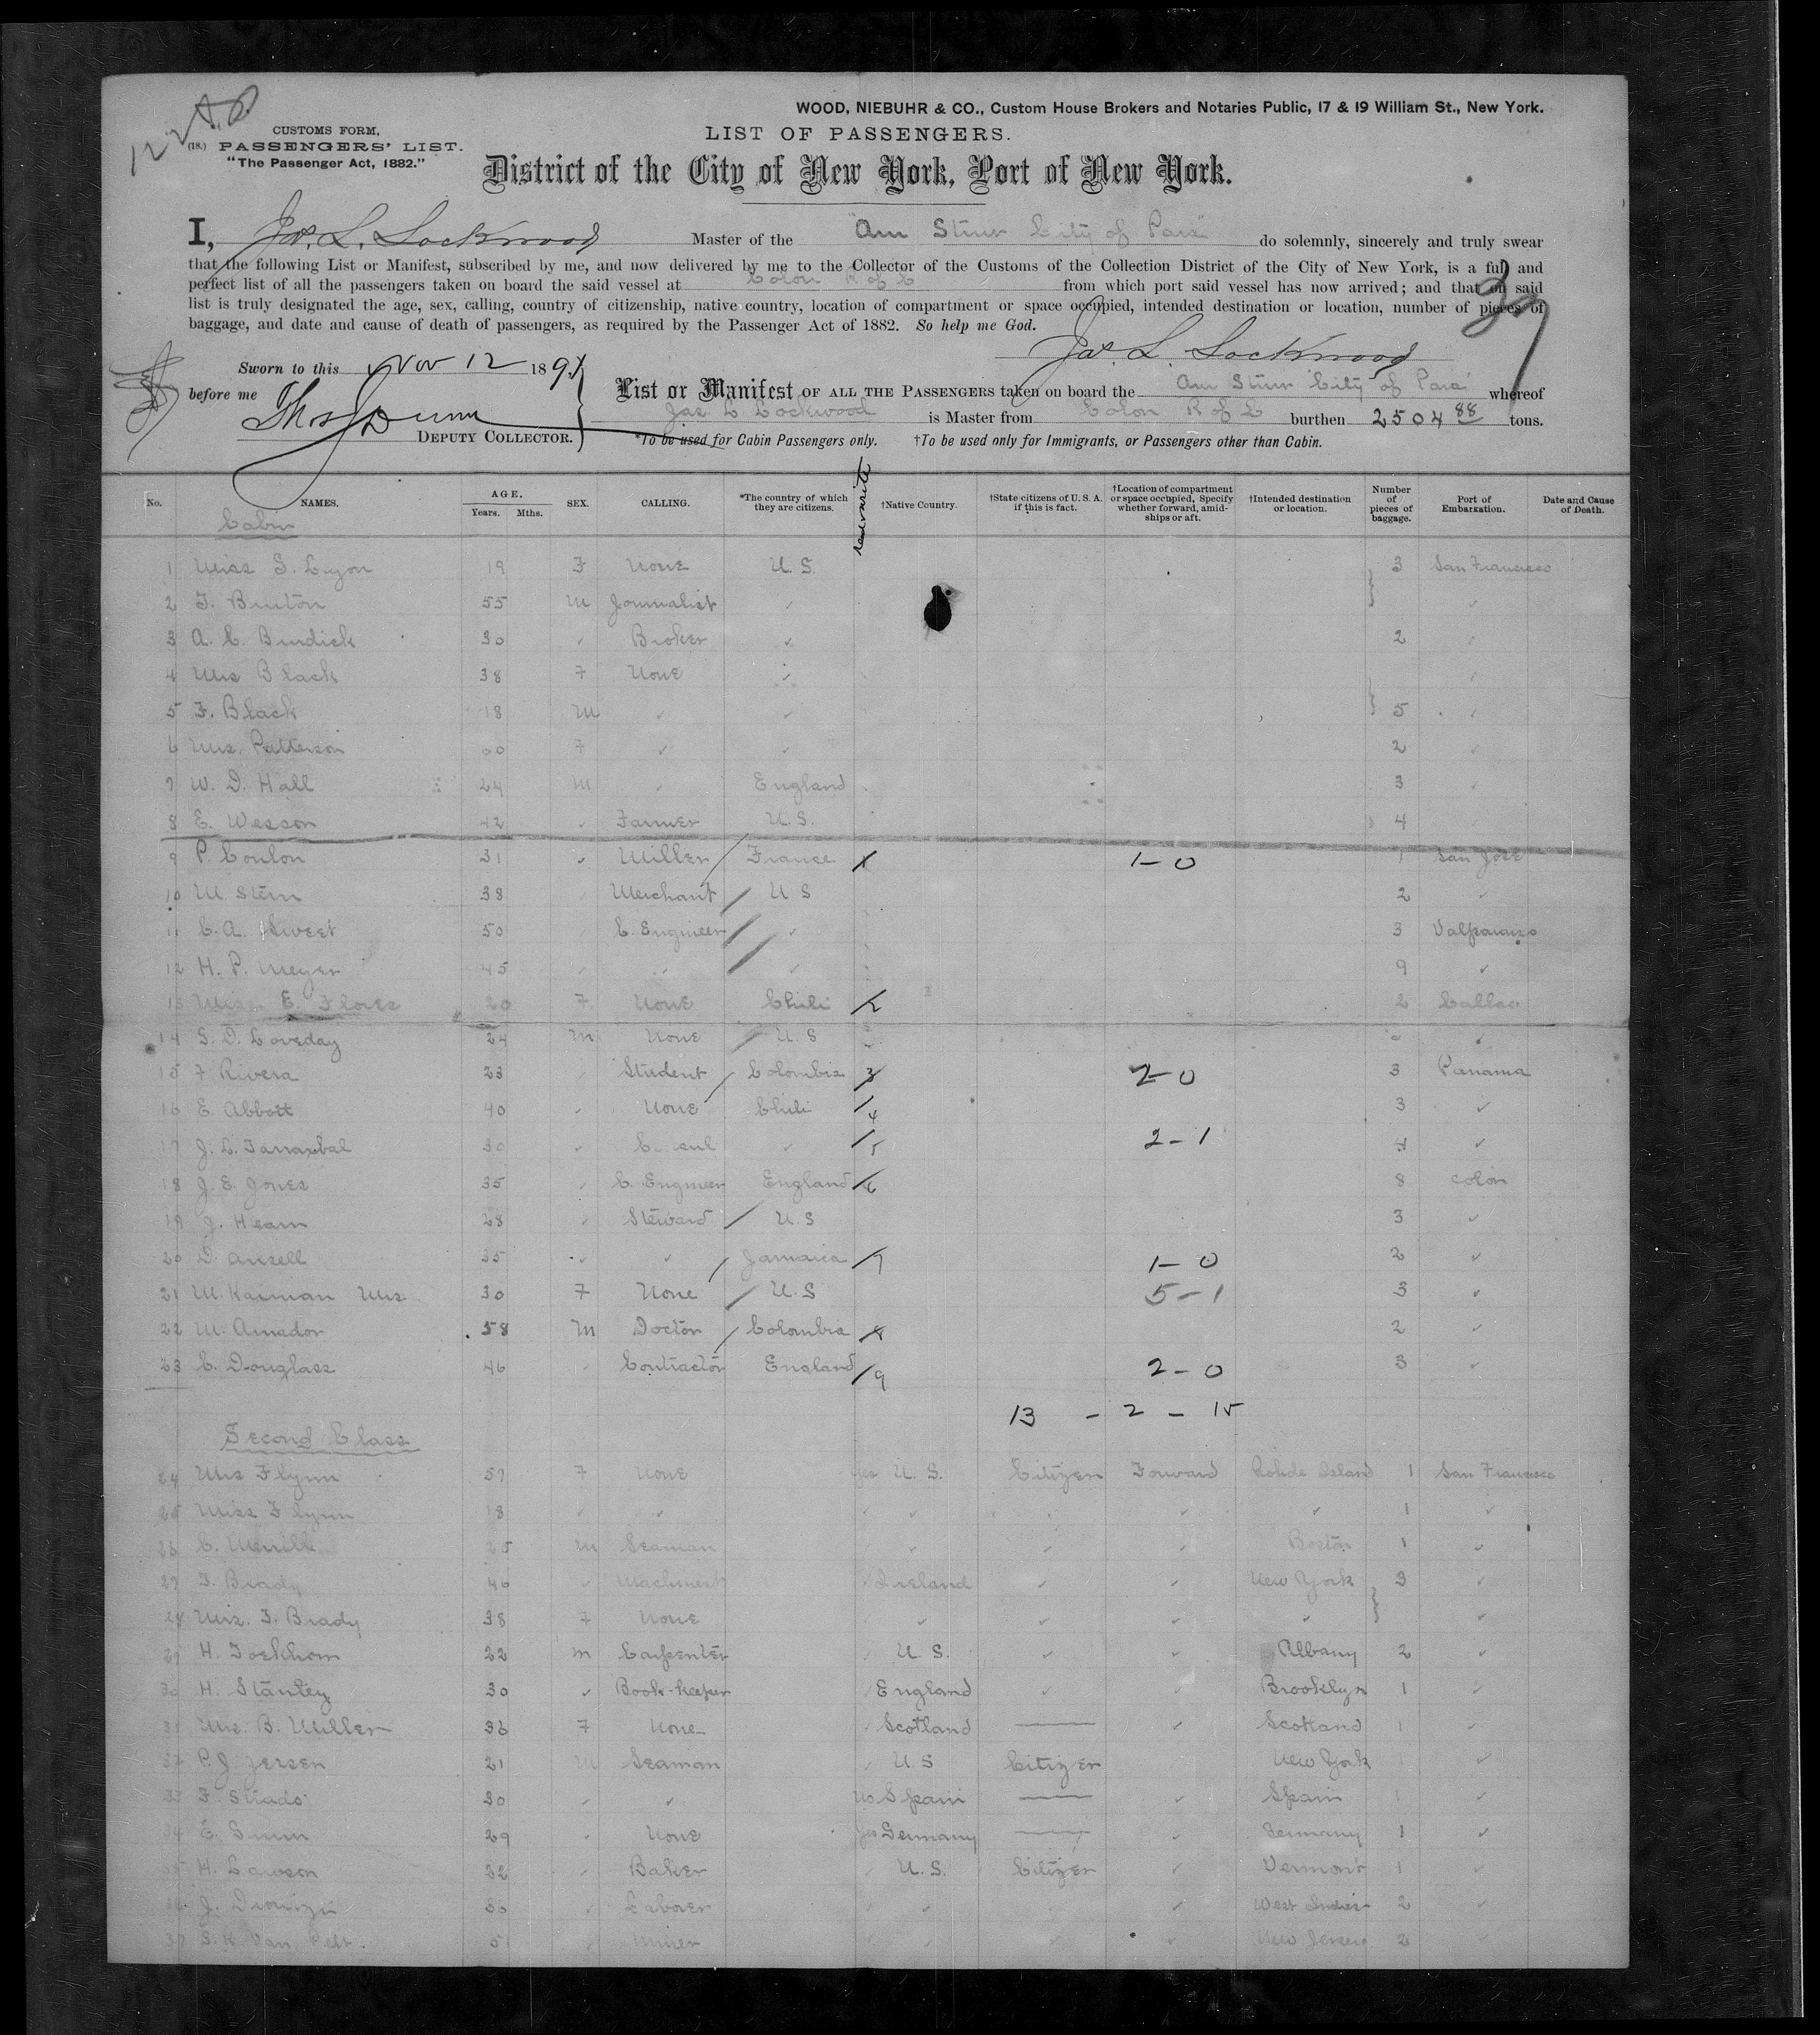 WOOD, NIEBUHR & CO., Custom House Brokers and Notaries Public, 17 & 19 William St., New York.
CUSTOMS FORM,
LIST OF PASSENGERS.
(18.) PASSENGERS' LIST.
"The Passenger Act, 1882."
District of the City of New York, Port of New York.
I, Jas. L. Lockwood Master of the "Am Stmr City of Para" do solemnly, sincerely and truly swear
that the following List or Manifest, subscribed by me, and now delivered by me to the Collector of the Customs of the Collection District of the City of New York, is a full and
perfect list of all the passengers taken on board the said vessel at Colon R of C from which port said vessel has now arrived; and that on said
list is truly designated the age, sex, calling, country of citizenship, native country, location of compartment or space occupied, intended destination or location, number of pieces of
baggage, and date and cause of death of passengers, as required by the Passenger Act of 1882. So help me God.
Jas L Lockwood
Sworn to this Nov 12 189
before me
List or Manifest OF ALL THE PASSENGERS taken on board the Am Stmr "City of Para" whereof
Thos J Dunn
Jas L Lockwood is Master from Colon R of C burthen 2504 88 tons.
DEPUTY COLLECTOR.
*To be used for Cabin Passengers only. †To be used only for Immigrants, or Passengers other than Cabin.
No. NAMES. AGE. Years. Mths. SEX. CALLING. *The country of which they are citizens. †Native Country. †State citizens of U. S. A. if this is fact. †Location of compartment or space occupied, Specify whether forward, amidships or aft. †Intended destination or location. Number of pieces of baggage. Port of Embarkation. Date and Cause of Death.
read & write
Cabin
1 Miss S. Lyon 19 F None U. S. 3 San Francisco
2 J. Burton 55 M Journalist ✓ ✓
3 A. C. Burdick 30 ✓ Broker ✓ 2 ✓
4 Mrs Black 38 F None ✓ ✓
5 F. Black 18 M ✓ ✓ 5 ✓
6 Mrs. Patterson 60 F ✓ ✓ 2 ✓
7 W. D. Hall 24 M ✓ England 3 ✓
8 E. Wesson 42 ✓ Farmer U.S. 4 ✓
9 P. Coulon 31 ✓ Miller France 1 1-0 1 San José
10 M. Stern 38 Merchant U S 2 ✓
11 C. A. Sweet 50 C. Engineer ✓ 3 Valparaiso
12 H. P. Meyer 45 ✓ ✓ ✓ 9 ✓
13 Miss E Flores 20 F. None Chili 2 2 Callao
14 S. D. Loveday 24 M None U.S ✓
15 F Rivera 23 ✓ Student Colombia 3 2-0 3 Panama
16 E. Abbott 40 ✓ None Chili 4 3 ✓
17 30 ✓ ✓ 5 2-1 4 ✓
18 J. E. Jones 35 ✓ C. Engineer England 6 8 Colon
19 J. Hearn 28 ✓ Steward U.S 3 ✓
20 D. Ansell 35 ✓ ✓ Jamaica 7 1-0 2 ✓
21 M. Kaiman Mrs. 30 F None U.S 5-1 3 ✓
22 M. Amador 58 M Doctor Colombia 8 2 ✓
23 C. Douglass 46 ✓ Contractor England 9 2-0 3 ✓
13 - 2 - 15
Second Class
24 Mrs Flynn 57 F None yes U. S. Citizen Forward Rohde Island 1 San Francisco
25 Miss Flynn 18 ✓ ✓ ✓ ✓ ✓ ✓ 1 ✓
26 C. Merrill 25 M Seaman ✓ ✓ ✓ Boston 1 ✓
27 J. Brady 46 ✓ Machinest Ireland ✓ ✓ New York 3 ✓
28 Mrs. J. Brady 38 F None ✓ ✓ ✓ ✓ ✓
29 H. Jockhom 22 m Carpenter U. S. ✓ ✓ Albany 2 ✓
30 H. Stantey 30 ✓ Book-keeper England ✓ ✓ Brooklyn 1 ✓
31 Mrs. B. Miller 36 F None Scotland — ✓ Scotland 1 ✓
32 P. J. Jersen 21 M Seaman U S Citizen New York 1 ✓
33 30 ✓ ✓ no Spain — ✓ Spain 1 ✓
34 29 ✓ None yes Germany — ✓ Germany 1 ✓
35 H. Lawson 22 ✓ Baker U. S. Citizen ✓ Vermont 1 ✓
36 J. 36 Laborer ✓ ✓ West Indies 2 ✓
37 S. K. Van Pelt. 51 ✓ Miner ✓ ✓ ✓ New Jersey 2 ✓